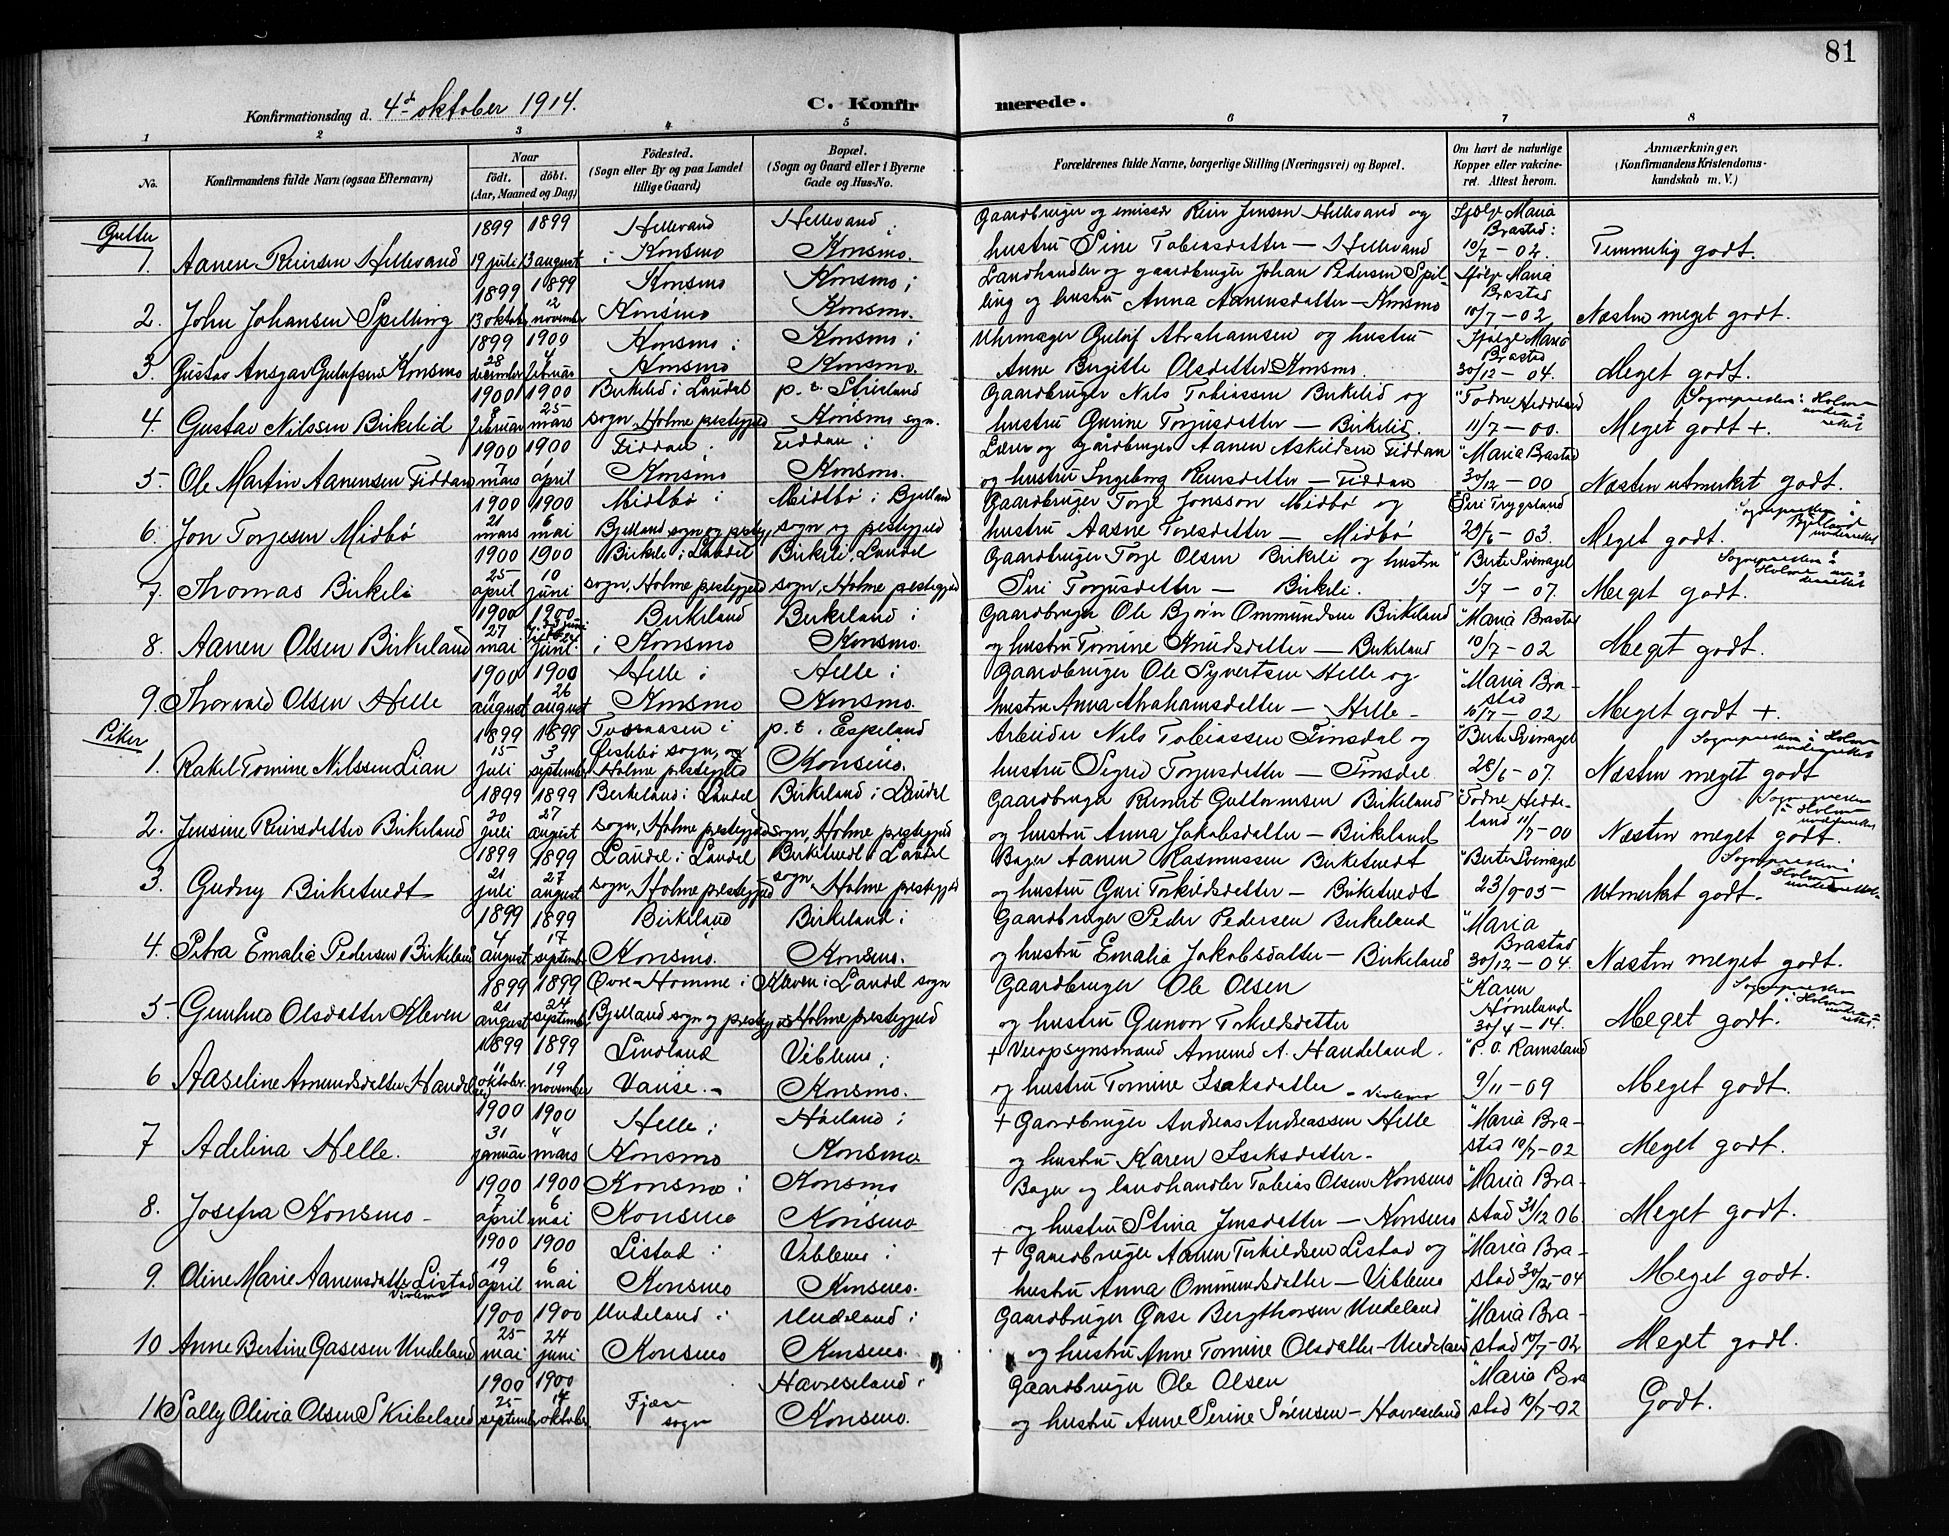 81
Konfirmationsdag d. 4d oktober 1914.
C. Konfirmerede.
1 2 3 4 5 6 7 8
No.
Konfirmandens fulde Navn (ogsaa Efternavn)
Naar
födt. döbt.
(Aar, Maaned og Dag)
Födested.
(Sogn eller By og paa Landet
tillige Gaard)
Bopæl.
(Sogn og Gaard eller i Byerne
Gade og Hus-No.
Forældrenes fulde Navne, borgerlige Stilling (Næringsvei) og Bopæl.
Om havt de naturlige
Kopper eller vakcine-
ret. Attest herom.
Anmærkninger.
(Konfirmandens Kristendoms-
kundskab m. V.)
Gutter
1899 1899 Hellevand Hellevand i Gaardbruger og emissær Reier Jensen Hellevand og Maria Brastad:
1. Aanen Reiersen Hellevand 19 juli 13 august i Konsmo Konsmo. hustru Sine Tobiasdatter — Hellevand 10/7 – 02. Temmelig godt.
1899 1899 Konsmo Konsmo i Landhandler og gaardbruger Johan Pedersen Spil- Maria Brastad
2. John Johansen Spilling 13 oktob. 2 november Konsmo Konsmo. ling og hustru Anna Aanensdatter – Konsmo 10/7 – 02 Næsten meget godt.
1899 1900 Konsmo i Konsmo i Uhrmager Gulaf Abrahamsen og hustru Maria Brastad
3. Gustav Ansgar Gulafsen Konsmo 28 december 4 februar Konsmo Konsmo. Anne Birgitte Olsdatter Konsmo. 30/12 – 04. Meget godt.
1900 1900 Birkelid i Laudal p. t. Stueland Gaardbruger Nils Tobiassen Birkelid og " Todne Heddeland Sognepresten i Holme underrettet
4. Gustav Nilssen Birkelid 8 februar 25 mars sogn, Holme prestegjeld Konsmo sogn. hustru Gurine Torjusdatter — Birkelid. 11/7 – 00. Meget godt +.
1900 1900 Fiddan i Fiddan i Lærer og gårdbruger Aanen Askildsen Fiddan " Maria Brastad
5 Ole Martin Aanensen Fiddan 7 mars 1 april Konsmo Konsmo. og hustru Ingeborg Reiersdatter — Fiddan 30/12 – 00 Næsten utmerket godt.
1900 1900 Midtbø i Midtbø i Bjelland Gaardbruger Torje Jonsson Midbø og Siri Trygsland Sognepresten i Bjelland underrettet
6. Jon Torjesen Midbø 21 mars 6 mai Bjelland sogn og prestgj sogn og prestegjeld hustru Aasne Toresdatter — Midbø 29/6 – 03. Meget godt.
1900 1900 Birkeli i Laudal Birkeli i Laudal Gaardbruger Torje Olsen Birkeli og hustru " Berte Svenagel Sognepresten i Holme underrettet
7. Thomas Birkeli 25 april 10 juni sogn, Holme prestegjeld sogn, Holme prestegjeld Siri Torjusdatter — Birkeli. 1/7 – 07. Meget godt.
1900 1900 Birkeland Birkeland i Gaardbruger Ole Bjørn Ommundsen Birkeland " Maria Brastad
8. Aanen Olsen Birkeland 27 mai juni. i Konsmo Konsmo. og hustru Tomine Knudsdatter — Birkeland 10/7 – 02 Meget godt.
1900 1900 Helle i Helle i Gaardbruger Ole Syvertsen Helle og " Maria Brastad
9. Thorvald Olsen Helle 11 august 26 august Konsmo Konsmo. hustru Anna Abrahamsdatter — Helle – 10/7 – 02 Meget godt +.
Piker
1899 1899 i p. t. Espeland Arbeider Nils Tobiassen Finsdal og " Berte Svenagel Sognepresten i Holme underrettet
1. Rakel Tomine Nilssen Lian 15 juli 3 september sogn, og Holme prestegjeld Konsmo. hustru Sigrid Torjusdatter — Finsdal. 28/6 – 07. Næsten meget godt
1899 1899 Birkeland i Laudal Birkeland i Laudal Gaardbruger Reinert Guttormsen Birkeland " Todne Hedde- Sognepresten i Holme underrettet
2. Jensine Reiersdatter Birkeland 20 juli 27 august sogn, Holme prestegjeld sogn, Holme prestegjeld og hustru Anna Jakobsdatter – Birkeland land 11/7 – 00 Næsten meget godt.
1899 1899 Laudal i Laudal Birketvedt i Laudal Bager Aanen Rasmussen Birketvedt " Berte Svenagel Sognepresten i Holme underrettet.
3. Gudny Birketvedt 21 juli 27 august sogn, Holme prestegjeld sogn, Holme prestegjeld og hustru Guri Torkildsdatter – Birketvedt 23/9 – 05 – Utmerket godt.
1899 1899 Birkeland Birkeland i Gaardbruger Peder Pedersen Birkeland " Maria Brastad
4. Petra Emalia Pedersen Birkeland 4 august 17 september Konsmo. Konsmo. og hustru Emalia Jakobsdatter — Birkeland 30/12 – 04. Næsten meget godt.
1899 1899 Øvre Homme i Kleven i Laudal sogn Gaardbruger Ole Olsen " Karen Høneland Sognepresten i Holme underrettet.
5 Gunhild Olsdatter Kleven 21 august 24 septemb. Bjelland sogn og prestegj Holme prestegjeld og hustru Gunvor Torkildsdatter 30/4 – 14. Meget godt.
1899 1899 Lindland Viblemo i + Veiopsynsmand Amund A. Handeland. " P. O. Ramsland
6 Aaseline Amundsdatter Handeland 11 oktober 19 november Vanse. – Konsmo. og hustru Tomine Isaksdatter – Viblemo 9/11 – 09 Meget godt.
1900 1900 Helle i Høiland i + Gaardbruger Andreas Andreassen Helle " Maria Bra-
7 Adelina Helle. 31 januar 4 mars Konsmo Konsmo og hustru Karen Isaksdatter – stad 10/7 – 02 Meget godt.
1900 1900 Konsmo i Konsmo Bager og landhandler Tobias Olsen Konsmo " Maria Bra-
8. Josefra Konsmo – 7 april 6 mai Konsmo Konsmo og hustru Stina Jensdatter — Konsmo stad 31/12 06 Meget godt.
1900 1900 Listad i Viblemo i + Gaardbruger Aanen Torkildsen Listad og " Maria Bra-
9. Oline Marie Aanensdatter Listad Viblemo 19 april 6 mai Konsmo Konsmo. hustru Anna Ommundsdatter – Viblemo stad 30/12 – 04 Meget godt.
1900 1900 Undeland i Undeland i Gaardbruger Gase Bergthorsen Undeland " Maria Bra-
10 Anne Bertine Gasesen Undeland 25 mai 24 juni Konsmo Konsmo. og hustru Anne Tomine Olsdatter – Undeland stad 10/7 – 02 Meget godt.
1900 1900 Havreseland i Gaardbruger Ole Olsen " Maria Bra
11 Sally Olivia Olsen Skibeland 25 septemb. 14 oktober Fjære sogn Konsmo. og hustru Anne Serine Sørensen – Havreseland stad 10/7 – 02 Godt.